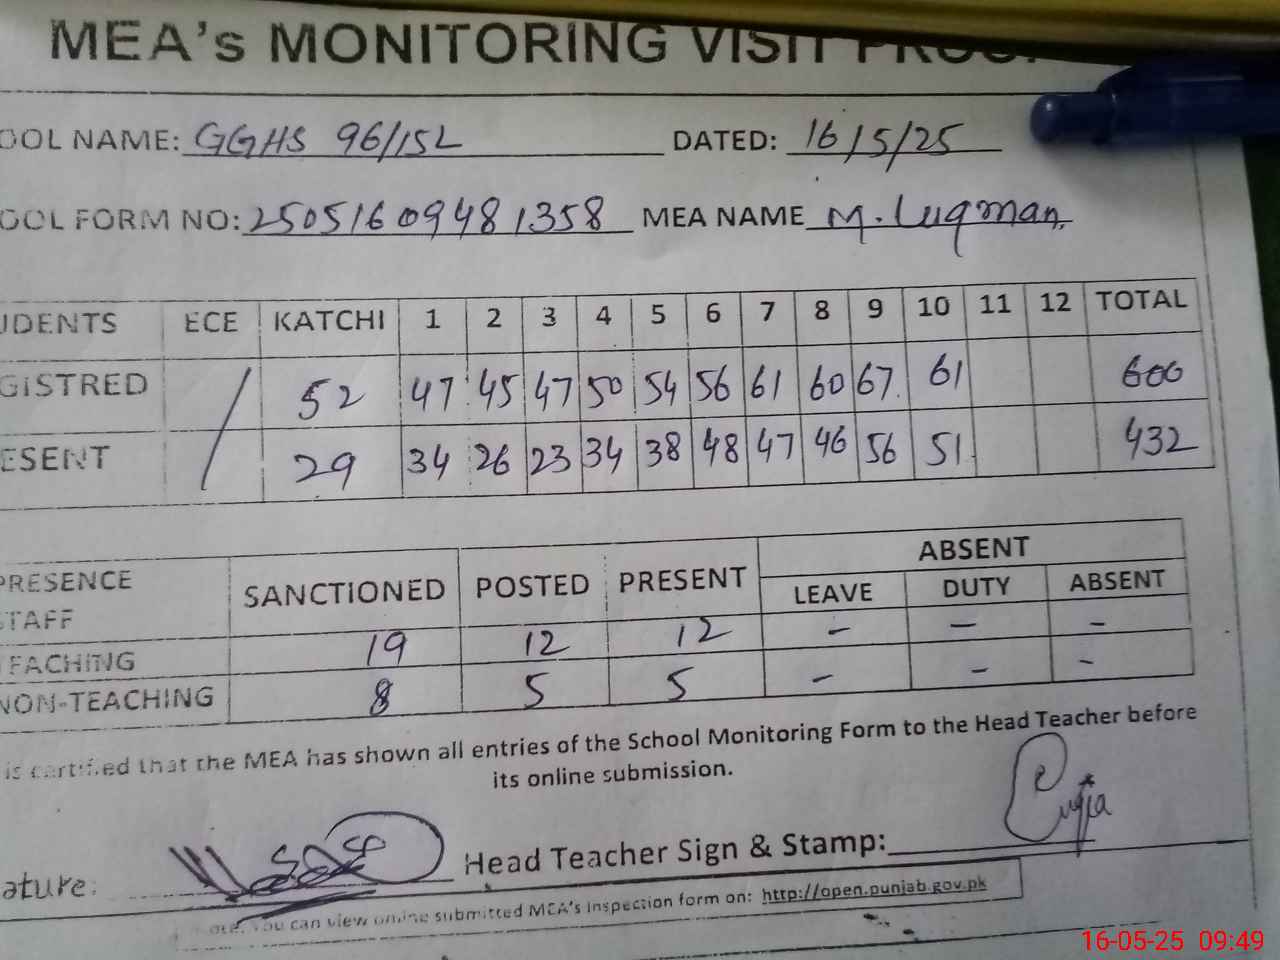 MEA's MONITORING VISIT PROO
OOL NAME: GGHS 96/15L DATED: 16/5/25
OOL FORM NO: 25051609481358 MEA NAME M. Luqman,
UDENTS ECE KATCHI 1 2 3 4 5 6 7 8 9 10 11 12 TOTAL
GISTRED / 52 47 45 47 50 54 56 61 60 67 61 600
ESENT 29 34 26 23 34 38 48 47 46 56 51 432
PRESENCE SANCTIONED POSTED PRESENT ABSENT
TAFF LEAVE DUTY ABSENT
EACHING 19 12 12 - - -
NON-TEACHING 8 5 5 - - -
is certified that the MEA has shown all entries of the School Monitoring Form to the Head Teacher before
its online submission.
ature: Head Teacher Sign & Stamp:
ote: You can view online submitted MEA's Inspection form on: http://open.punjab.gov.pk
16-05-25 09:49